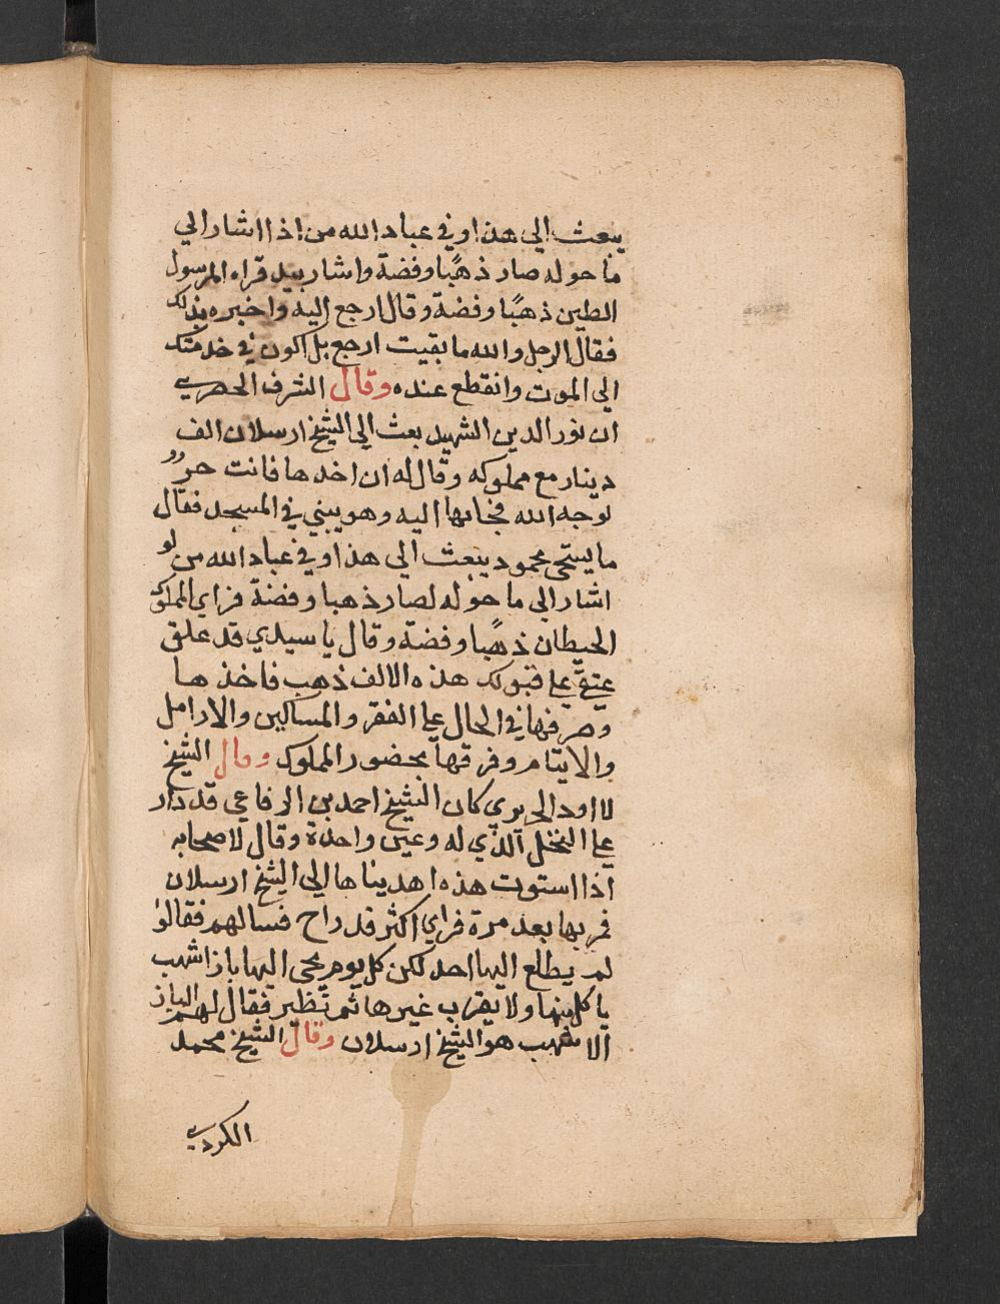 يبعث الي هذا وفي عباد الله من اذا اشار الي
ما حوله صار ذهبًا وفضة واشار بيد فراء الرسول
الطين ذهبًا وفضة وقال ارجع اليه واخبره بذلك
فقال الرجل والله ما بقيت ارجع بل اكون في خدمتك
الي الموت وانقطع عنده وقال الشرف الحصري
ان نور الدين الشهيد بعث الي الشيخ ارسلان الف
دينار مع مملوكه وقال له ان اخدها فانت حرٌ
لوجه الله فجا بها اليه وهو يبني في المسجد فقال
ما يستحي محمود يبعث الي هذا وفي عباد الله من لو
اشار الي ما حوله لصار ذهبا وفضة فراي المملوك
الحيطان ذهبًا وفضة وقال يا سيدي قد علق
عتقي علي قبولك هذه الالف ذهب فاخذها
وصرفها في الحال علي الفقر والمساكين والارامل
والايتام وفرقها بحضور المملوك وقال الشيخ
داود الحريري كان الشيخ احمد بن الرفاعي قد دار
علي النخل الذي له وعين واحدة وقال لاصحابه
اذا استوت هذه اهديناها الي الشيخ ارسلان
فمر بها بعد مرة فراي اكثر قد راح فسالهم فقالوا
لم يطلع اليها احد لكن كل يوم يجي اليها باز اشهب
ياكل منها ولا يقرب غيرها ثم تظير فقال لهم الباز
الاشهب هو الشيخ ارسلان وقال الشيخ محمد
الكردي